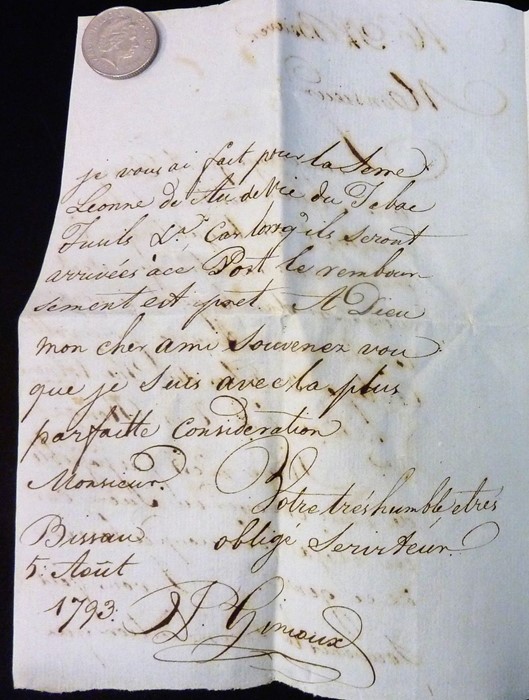 je vous ai fait pour la Serre
Leonne de l'Au de Vie du Tebac
Fusils &.ª Car lorsq'ils seront
arrivées à ce Port le rembour-
sement est pret. A Dieu
mon cher ami Souvenez vou
que je Suis avec la plus
parfaitte Consideration
Monsieur.
Votre trés humble et trés
obligé Serirteur.
Bissau
5. Août
1793.
Ginioux